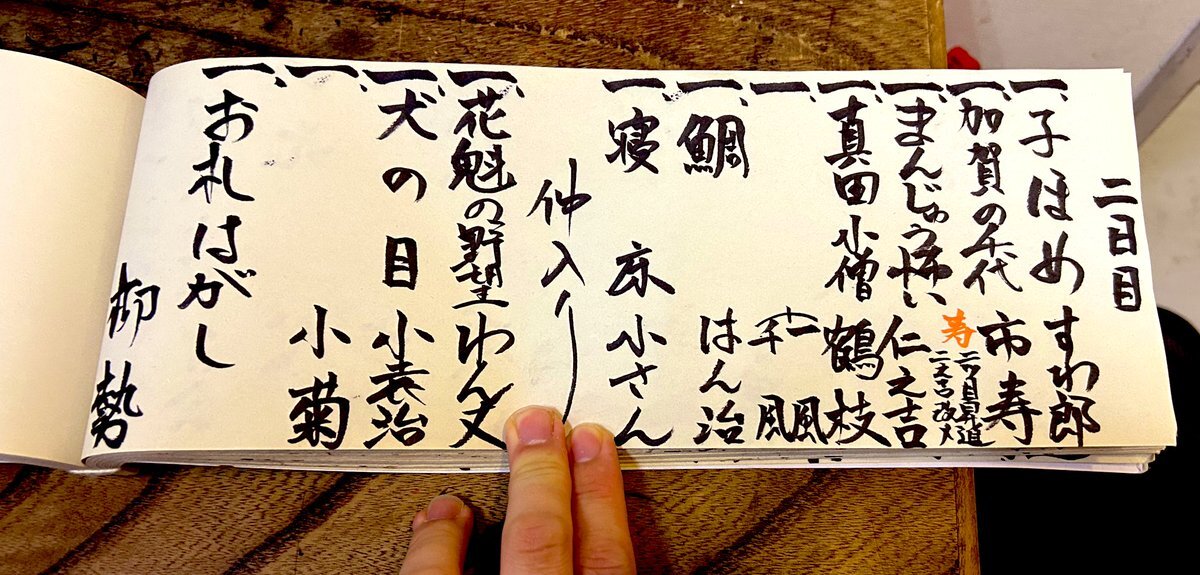 二日目
一、子ほめ すわ郎
一、加賀の千代 市寿
寿 二ツ目昇進
一、まんじゅう怖い 仁之吉
一、真田小僧 鶴枝
一、
一、鯛 はん治
一、寝床 小さん
仲入り
一、花魁の野望 わん丈
一、犬の目 小袁治
一、 小菊
一、お札はがし
柳勢